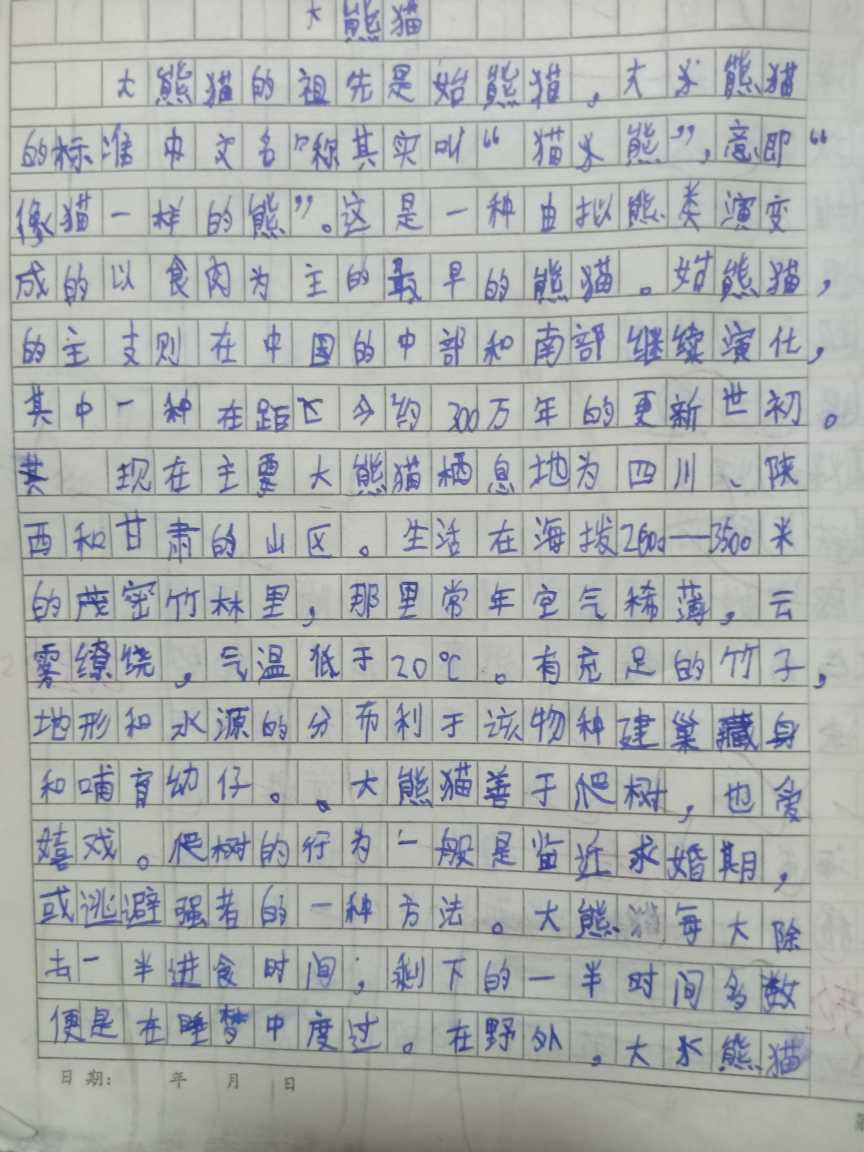 大熊猫
大熊猫的祖先是始熊猫,大水熊猫
的标准中文名"称其实叫“猫水熊”,意即“
像猫一样的熊”。这是一种由拟熊类演变
成的以食肉为主的最早的熊猫。始熊猫,
的主支则在中国的中部和南部继续演化,
其中一种在距区今约300万年的更新世初。
其 现在主要大熊猫栖息地为四川、陕
西和甘肃的山区。生活在海拨2600—3500米
的茂密竹林里,那里常年空气稀薄,云
雾缭绕,气温低于20℃。有充足的竹子,
地形和水源的分布利于该物种建巢藏身
和哺育幼仔。。大熊猫善于爬树,也爱
嬉戏。爬树的行为一般是监近求婚期,
或逃避强者的一种方法。大熊猫每大除
去一半进食时间,剩下的一半时间多数
便是在睡梦中度过。在野外,大水熊猫
日期: 年 月 日